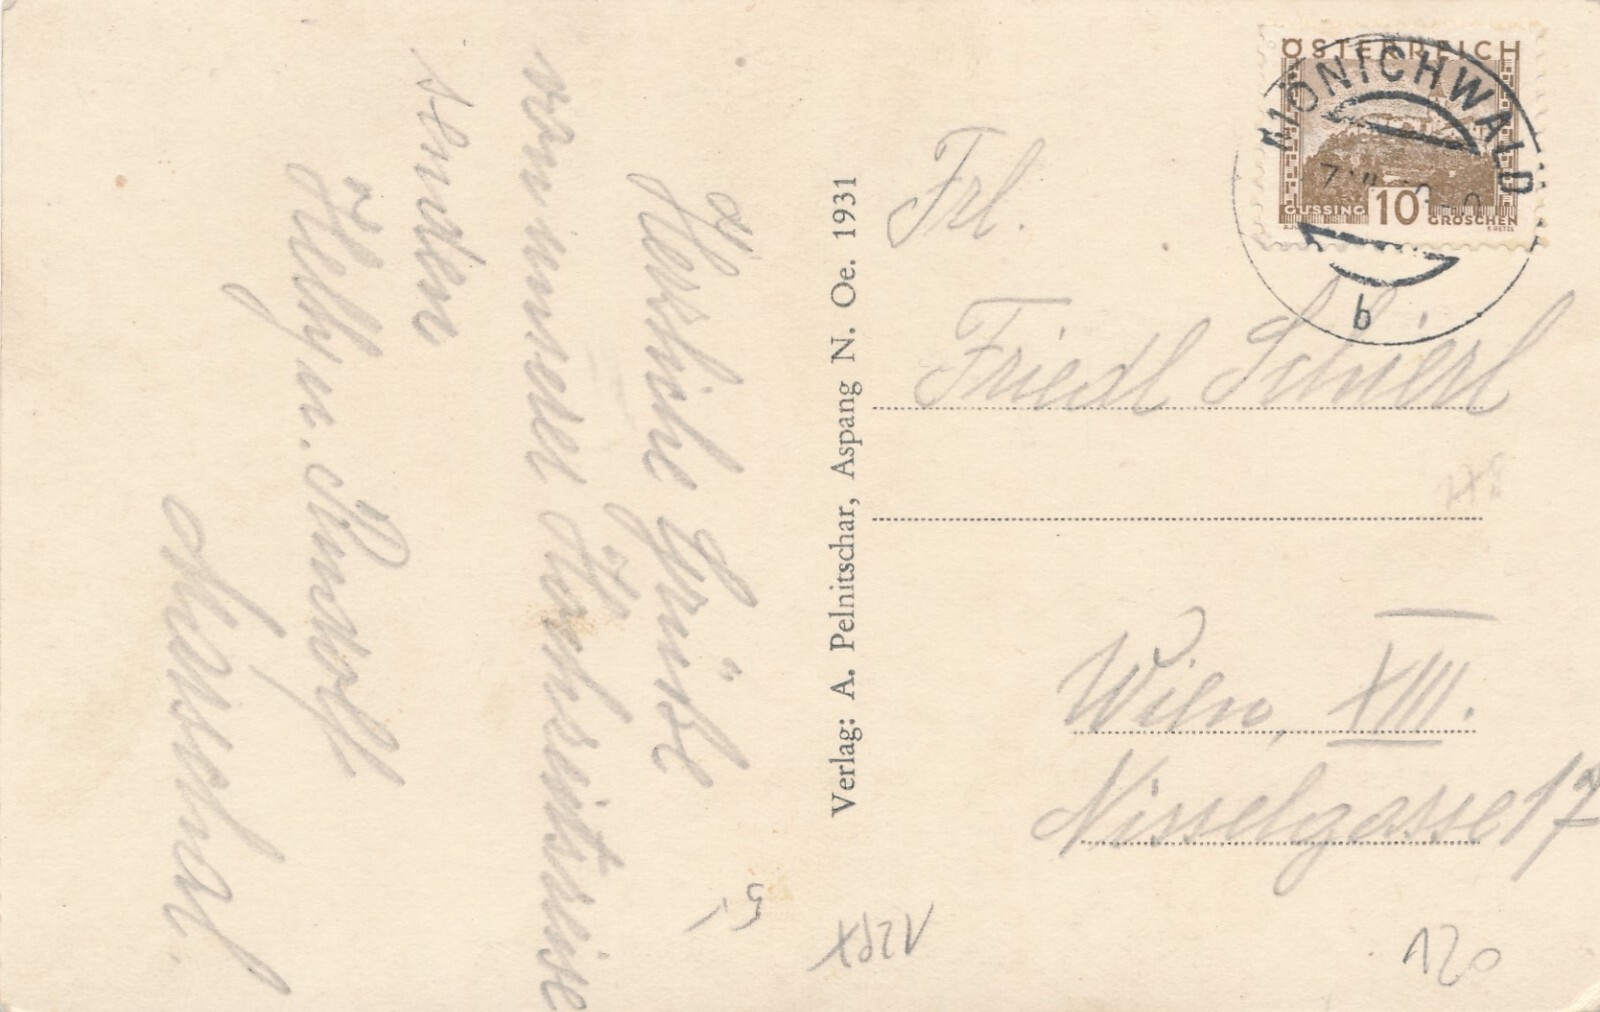 Herzliche Grüße
von unserer Hochzeitsreise
senden
Helly u. Rudolf
Verlag: A. Pelnitschar, Aspang N. Oe. 1931
ÖSTERREICH
GÜSSING 10 GROSCHEN
MÖNICHWALD
b
Frl.
Friedl Schierl
Wien, XIII.
Nisselgasse 17
120